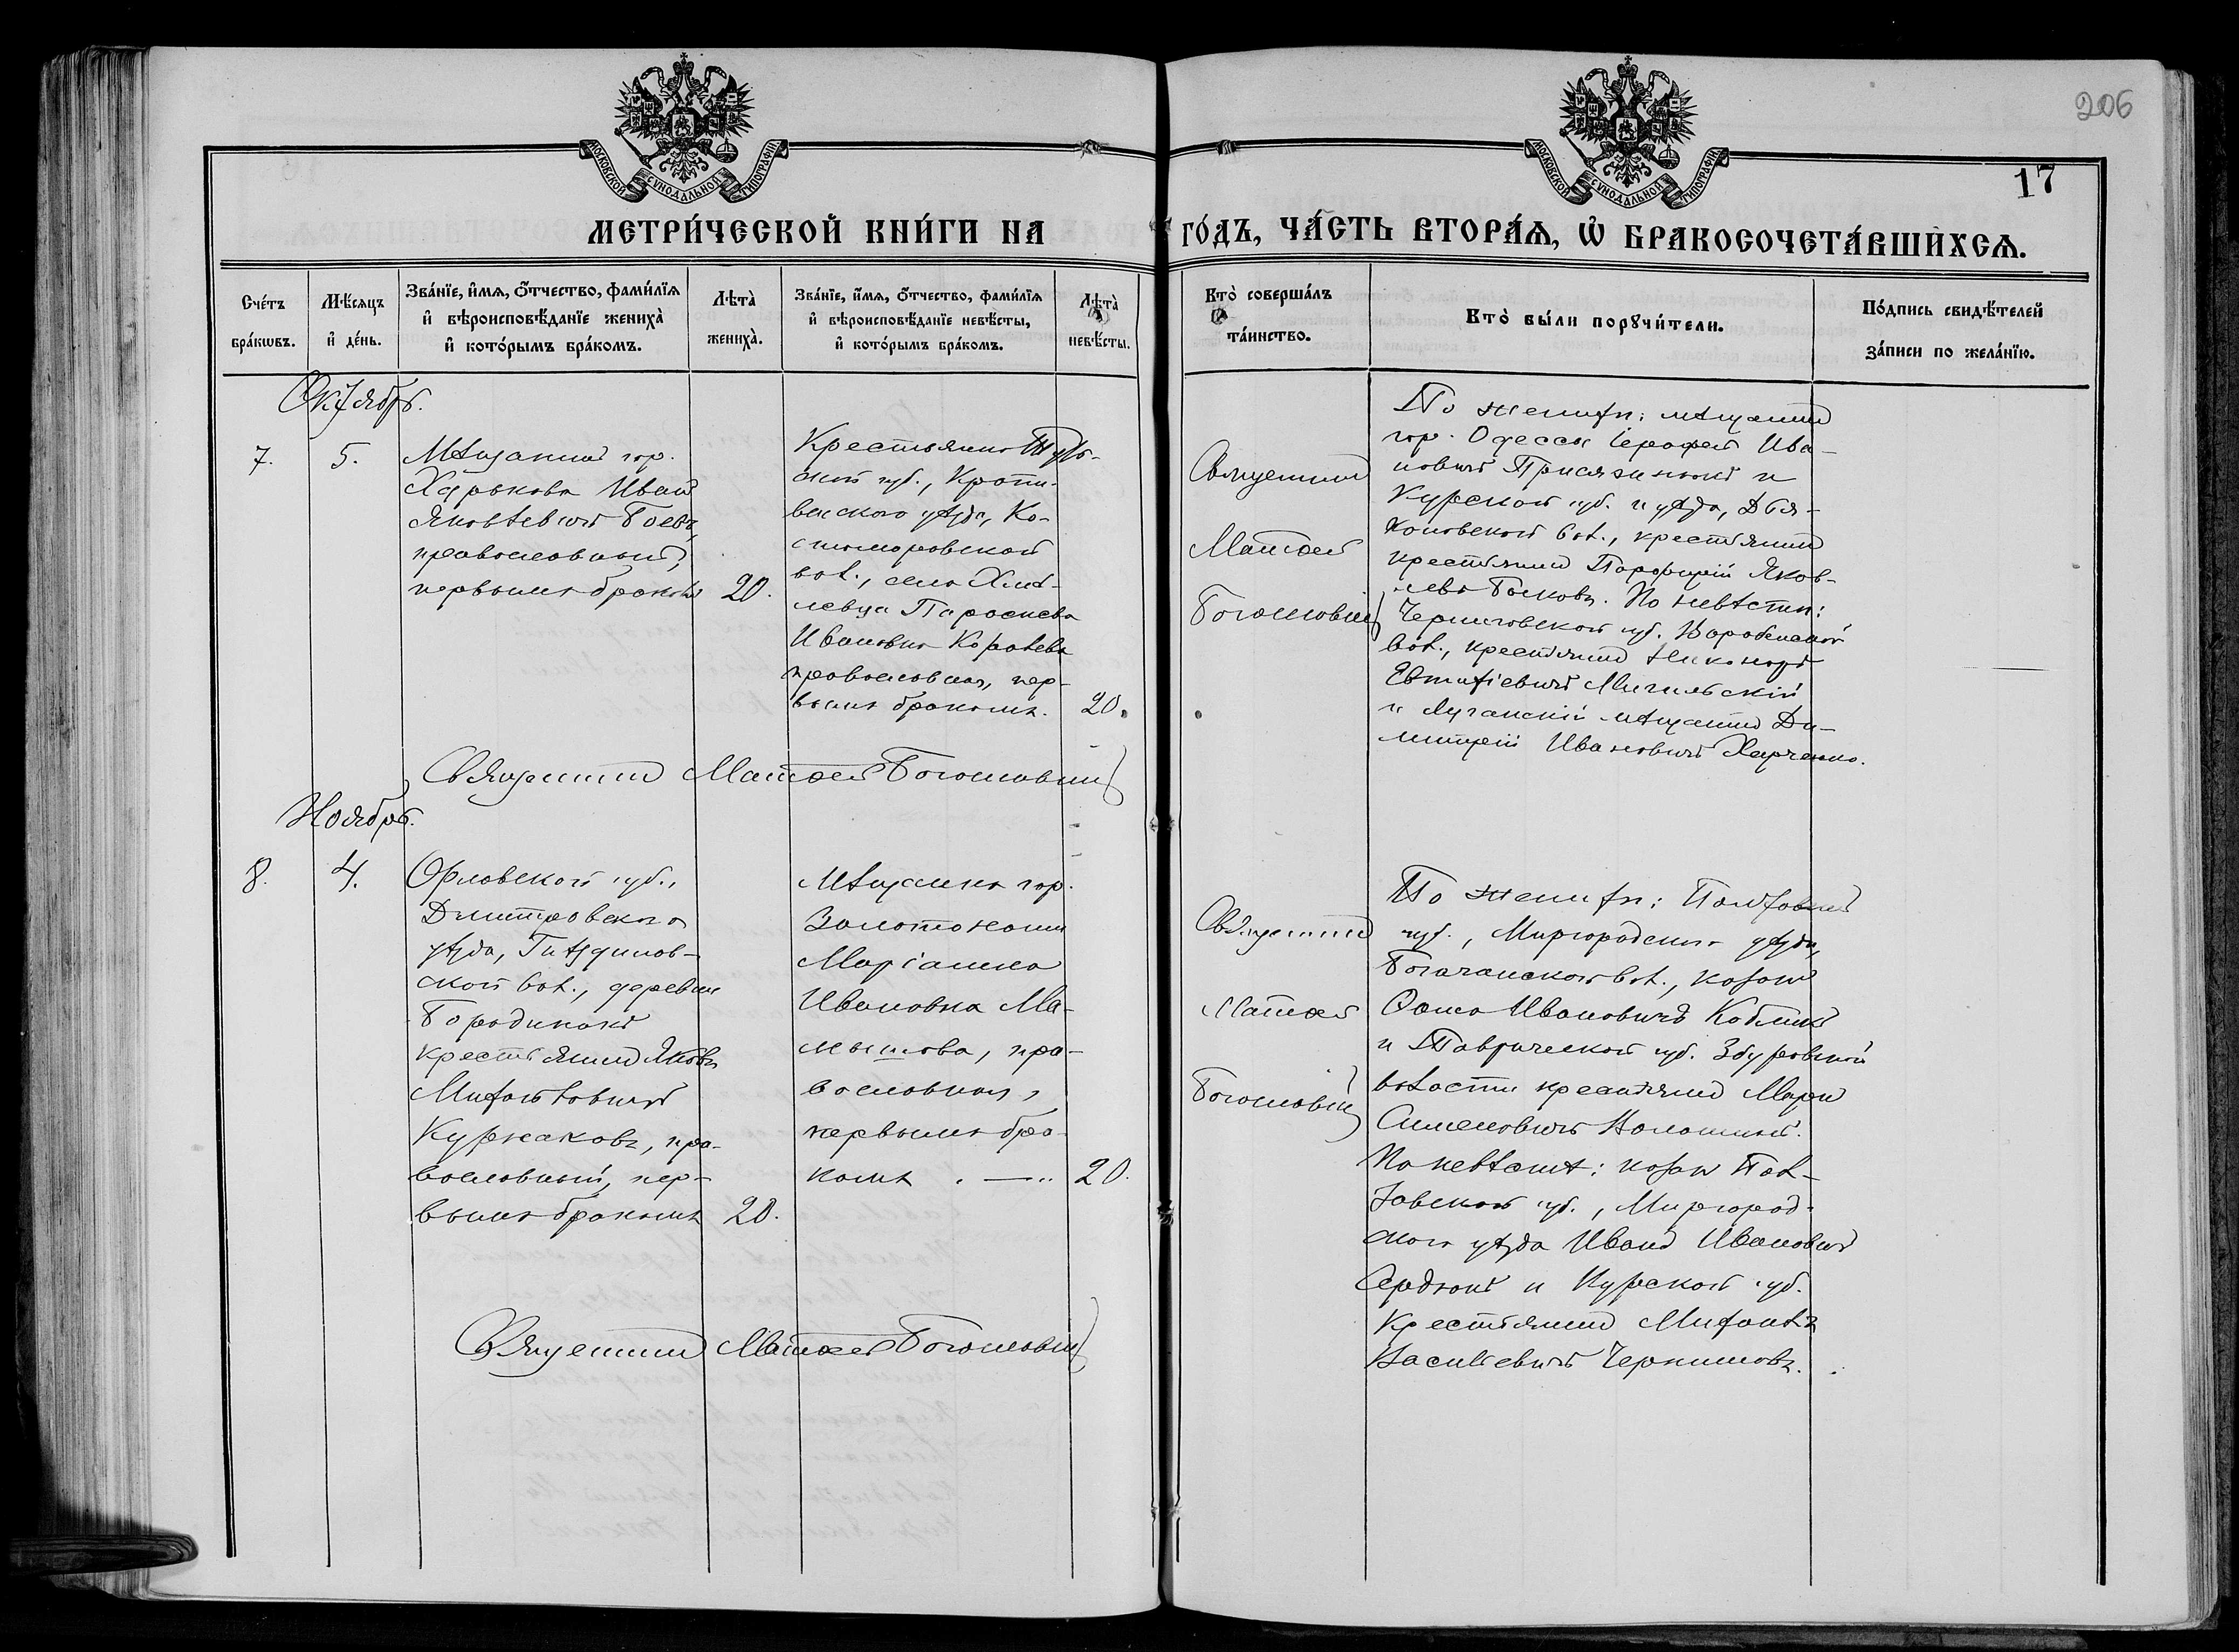 206
17
МОСКОВСКОЙ СУНОДАЛЬНОЙ ТИПОГРАФІИ
МОСКОВСКОЙ СУНОДАЛЬНОЙ ТИПОГРАФІИ
МЕТРИ́ЧЕСКОЙ КНИ́ГИ НА
ГО́ДЪ, ЧА́СТЬ ВТОРА́Ѧ, Ѡ҆ БРАКОСОЧЕТА́ВШИХСѦ.
Сче́тъ
бра́кѡвъ.
Мѣ́сѧцъ
и҆ де́нь.
Зва́нїе, и҆́мѧ, ѻ҆́тчество, фами́лїѧ
и҆ вѣроисповѣ́данїе жениха̀
и҆ кото́рымъ бра́комъ.
Лѣта̀
жениха̀.
Зва́нїе, и҆́мѧ, ѻ҆́тчество, фами́лїѧ
и҆ вѣроисповѣ́данїе невѣ́сты,
и҆ кото́рымъ бра́комъ.
Лѣта̀
невѣ́сты.
Кто̀ соверша́лъ
та́инство.
Кто̀ бы́ли порꙋчи́тели.
По́дпись свидѣ́телей
за́писи по жела́нїю.
Октябрь.
7.
5.
Мѣщанинъ гор.
Харькова Иванъ
Яковлевичъ Боевъ,
православный,
первымъ бракомъ
20.
Крестьянка Туль-
ской губ., Крапи-
венскаго уѣзда, Ко-
вол., села Хмѣ-
левца Параскева
Ивановна Королева
православная, пер-
вымъ бракомъ.
20.
Священникъ
Матѳей
Богословскій
По женихѣ: мѣщанинъ
гор. Одессы Іерофей Ива-
новичъ Присяжнюкъ и
Курской губ. и уѣзда, Дья-
коновской вол., крестьянинъ
крестьянинъ Порфирій Яков-
левъ Бочковъ. По невѣстѣ:
Черниговской губ.
вол., крестьянинъ Никоноръ
Евтихіевичъ
и Луганскій мѣщанинъ Ди-
митрій Ивановичъ Харченко.
Священникъ Матѳей Богословскій
Ноябрь.
8.
4.
Орловской губ.,
Дмитровскаго
уѣзда, Гнѣздилов-
ской вол., деревни
Бородинки
крестьянинъ Яковъ
Михайловичъ
Куржаковъ, пра-
вославный, пер-
вымъ бракомъ
20.
Мѣщанка гор.
Золотоноши
Маріамна
Ивановна Ма-
мышова, пра-
вославная,
первымъ бра-
комъ
20.
Священникъ
Матѳей
Богословскій
По женихѣ: Полтавской
губ., Миргородскаго уѣзда,
Богачанской вол., козакъ
Ѳома Ивановичъ Коблицъ
и Таврической губ. Збурьевской
волости крестьянинъ Маркъ
Симеоновичъ Волошинъ.
По невѣстѣ: козакъ Пол-
тавской губ., Миргород-
скаго уѣзда Иванъ Ивановичъ
Сердюкъ и Курской губ.
крестьянинъ Михаилъ
Васильевичъ
Священникъ Матѳей Богословскій